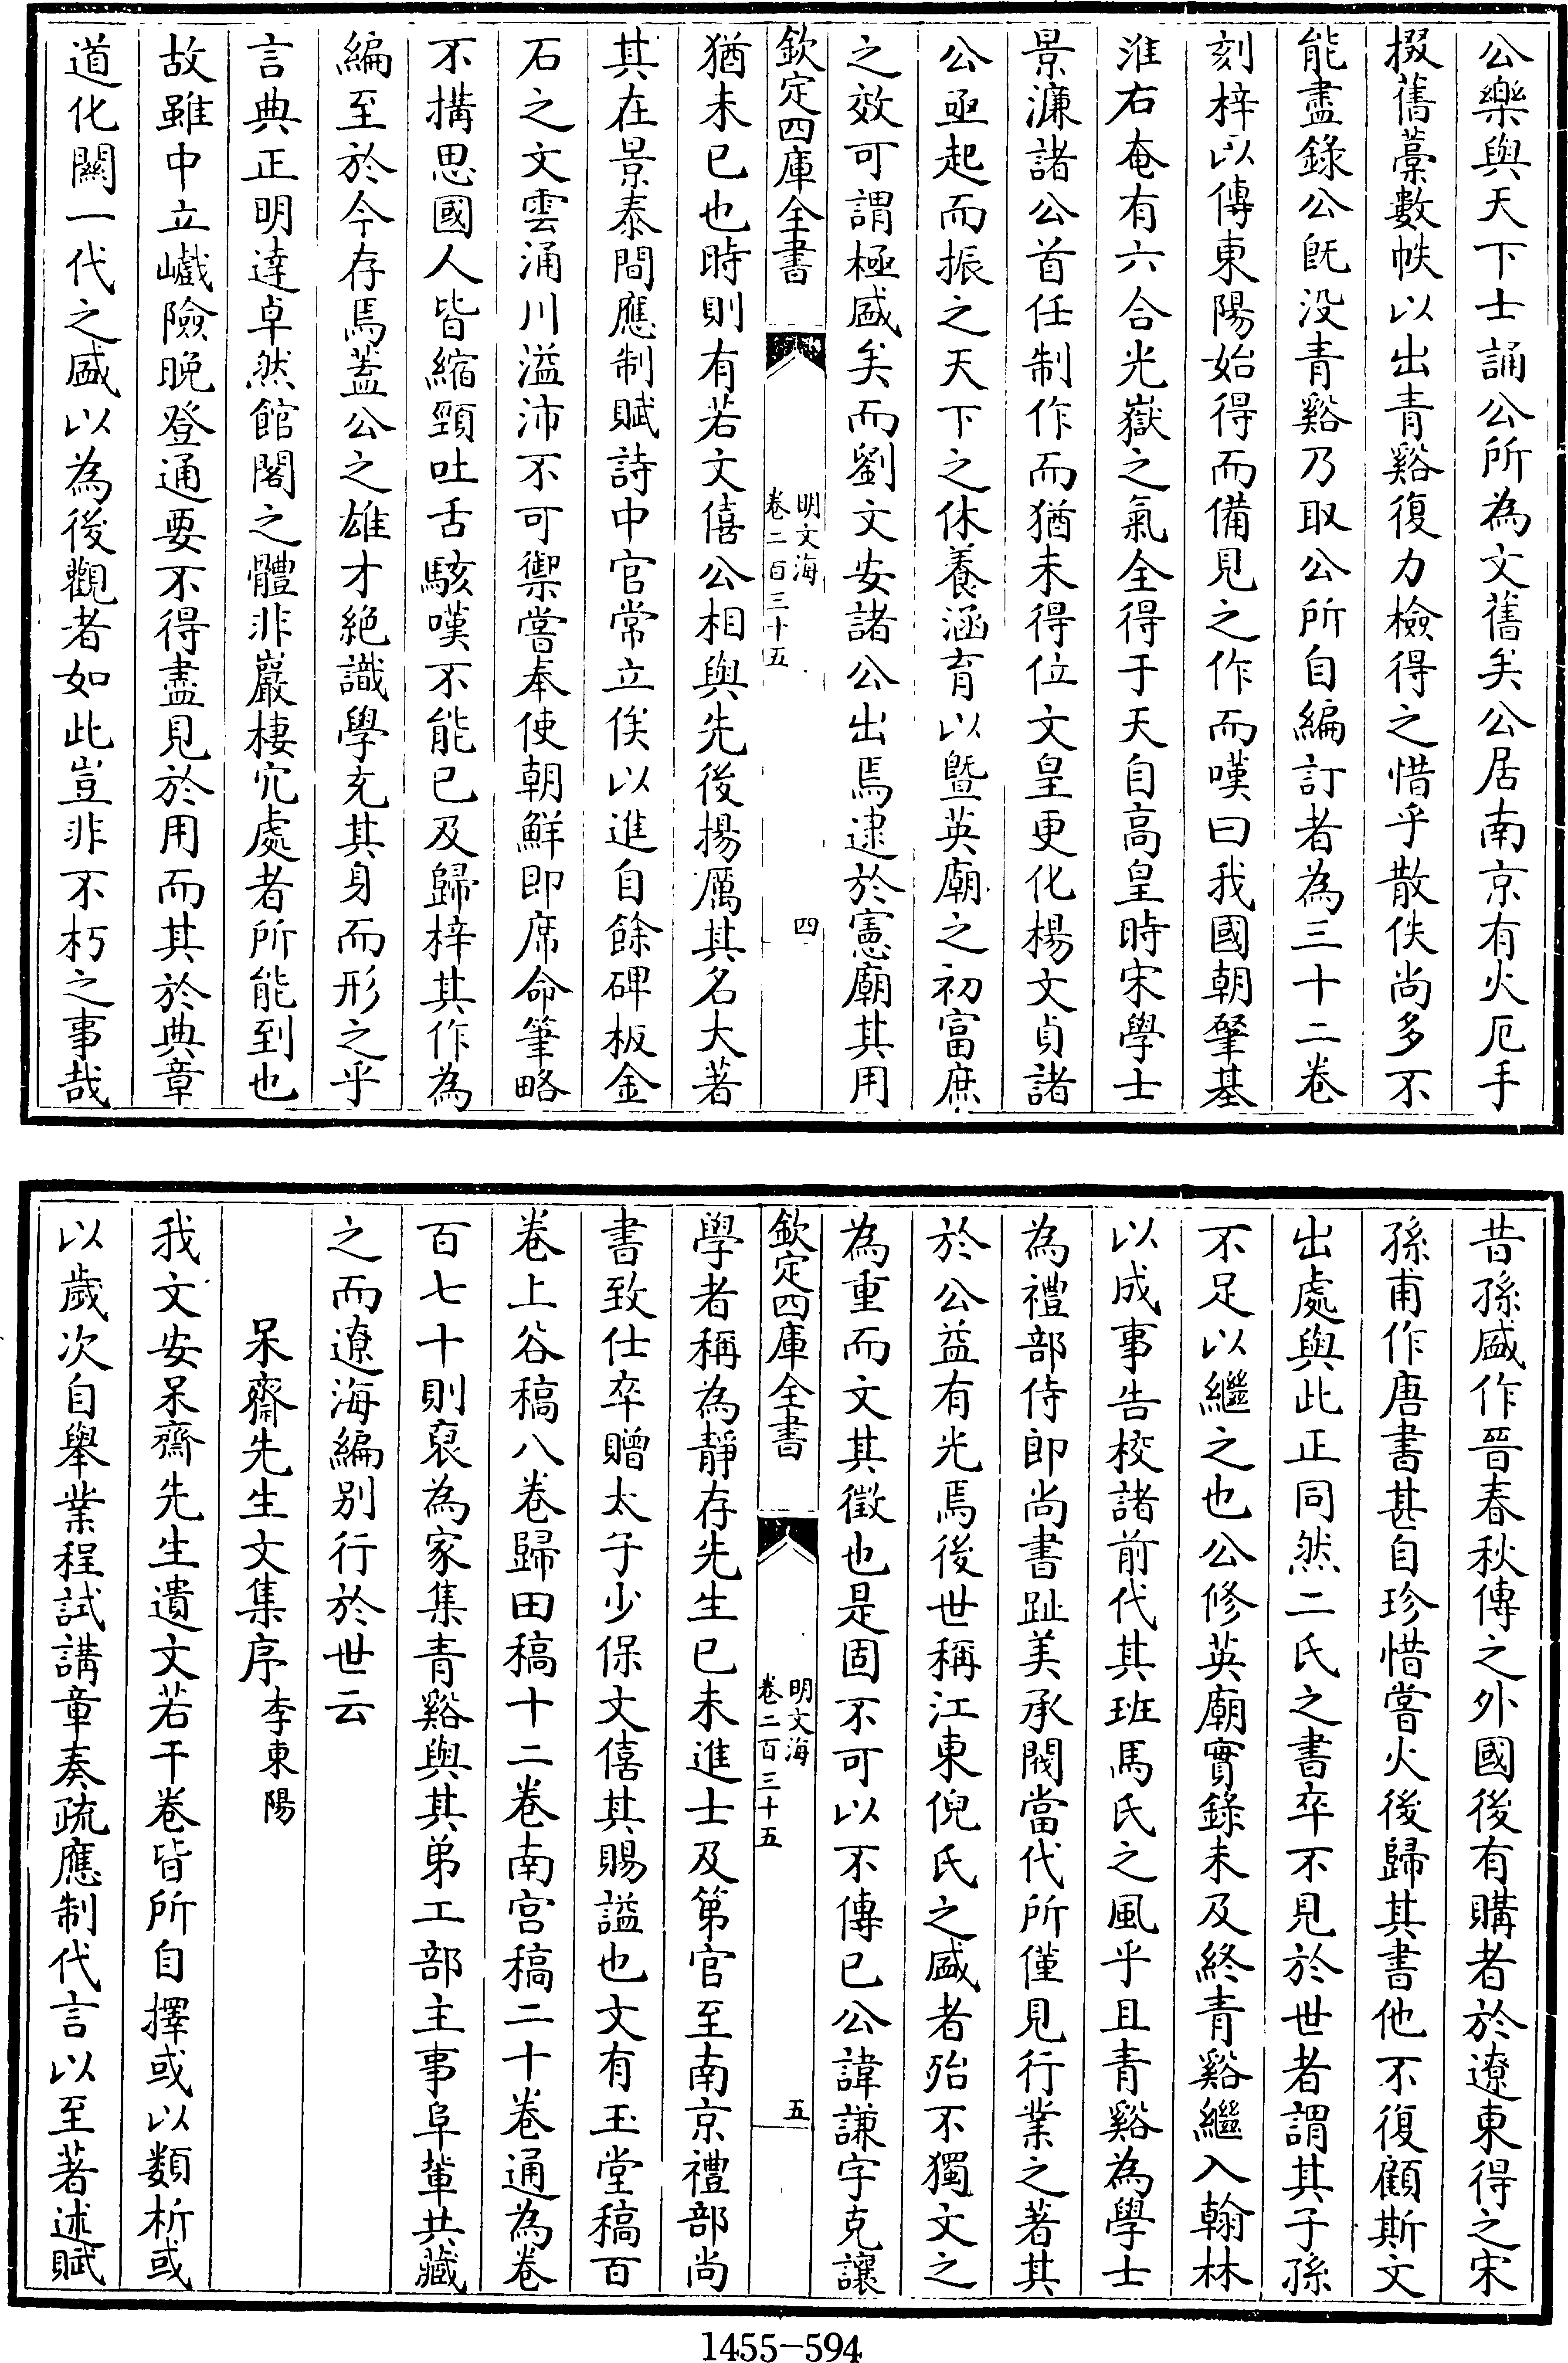 公樂與天下士誦公所為文舊矣公居南京有火厄手
掇舊藁數帙以出青谿復力檢得之惜乎散佚尚多不
能盡錄公既没青谿乃取公所自編訂者為三十二卷
刻梓以傳東陽始得而備見之作而嘆曰我國朝肇基
淮右奄有六合光嶽之氣全得于天自高皇時宋學士
景濂諸公首任制作而猶未得位文皇更化楊文貞諸
公亟起而振之天下之休養涵育以暨英廟之初富庶
之效可謂極盛矣而劉文安諸公出焉逮於憲廟其用
欽定四庫全書
明文海
卷二百三十五
四
猶未已也時則有若文僖公相與先後揚厲其名大著
其在景泰間應制賦詩中官常立俟以進自餘碑板金
石之文雲涌川溢沛不可禦嘗奉使朝鮮即席命筆略
不搆思國人皆縮頸吐舌駭嘆不能已及歸梓其作為
編至於今存焉蓋公之雄才絶識學充其身而形之乎
言典正明達卓然館閣之體非巖棲穴處者所能到也
故雖中立巇險晚登通要不得盡見於用而其於典章
道化闢一代之盛以為後觀者如此豈非不朽之事哉
昔孫盛作晉春秋傳之外國後有購者於遼東得之宋
孫甫作唐書甚自珍惜嘗火後歸其書他不復顧斯文
出處與此正同然二氏之書卒不見於世者謂其子孫
不足以繼之也公修英廟實錄未及終青谿繼入翰林
以成事告校諸前代其班馬氏之風乎且青谿為學士
為禮部侍郎尚書趾美承閥當代所僅見行業之著其
於公益有光焉後世稱江東倪氏之盛者殆不獨文之
為重而文其徵也是固不可以不傳已公諱謙字克讓
欽定四庫全書
明文海
卷二百三十五
五
學者稱為靜存先生已未進士及第官至南京禮部尚
書致仕卒贈太子少保文僖其賜謚也文有玉堂稿百
卷上谷稿八卷歸田稿十二卷南宫稿二十卷通為卷
百七十則裒為家集青谿與其弟工部主事阜輩共藏
之而遼海編别行於世云
呆齋先生文集序李東陽
我文安呆齋先生遺文若干卷皆所自擇或以類析或
以歲次自舉業程試講章奏疏應制代言以至著述賦
1455-594